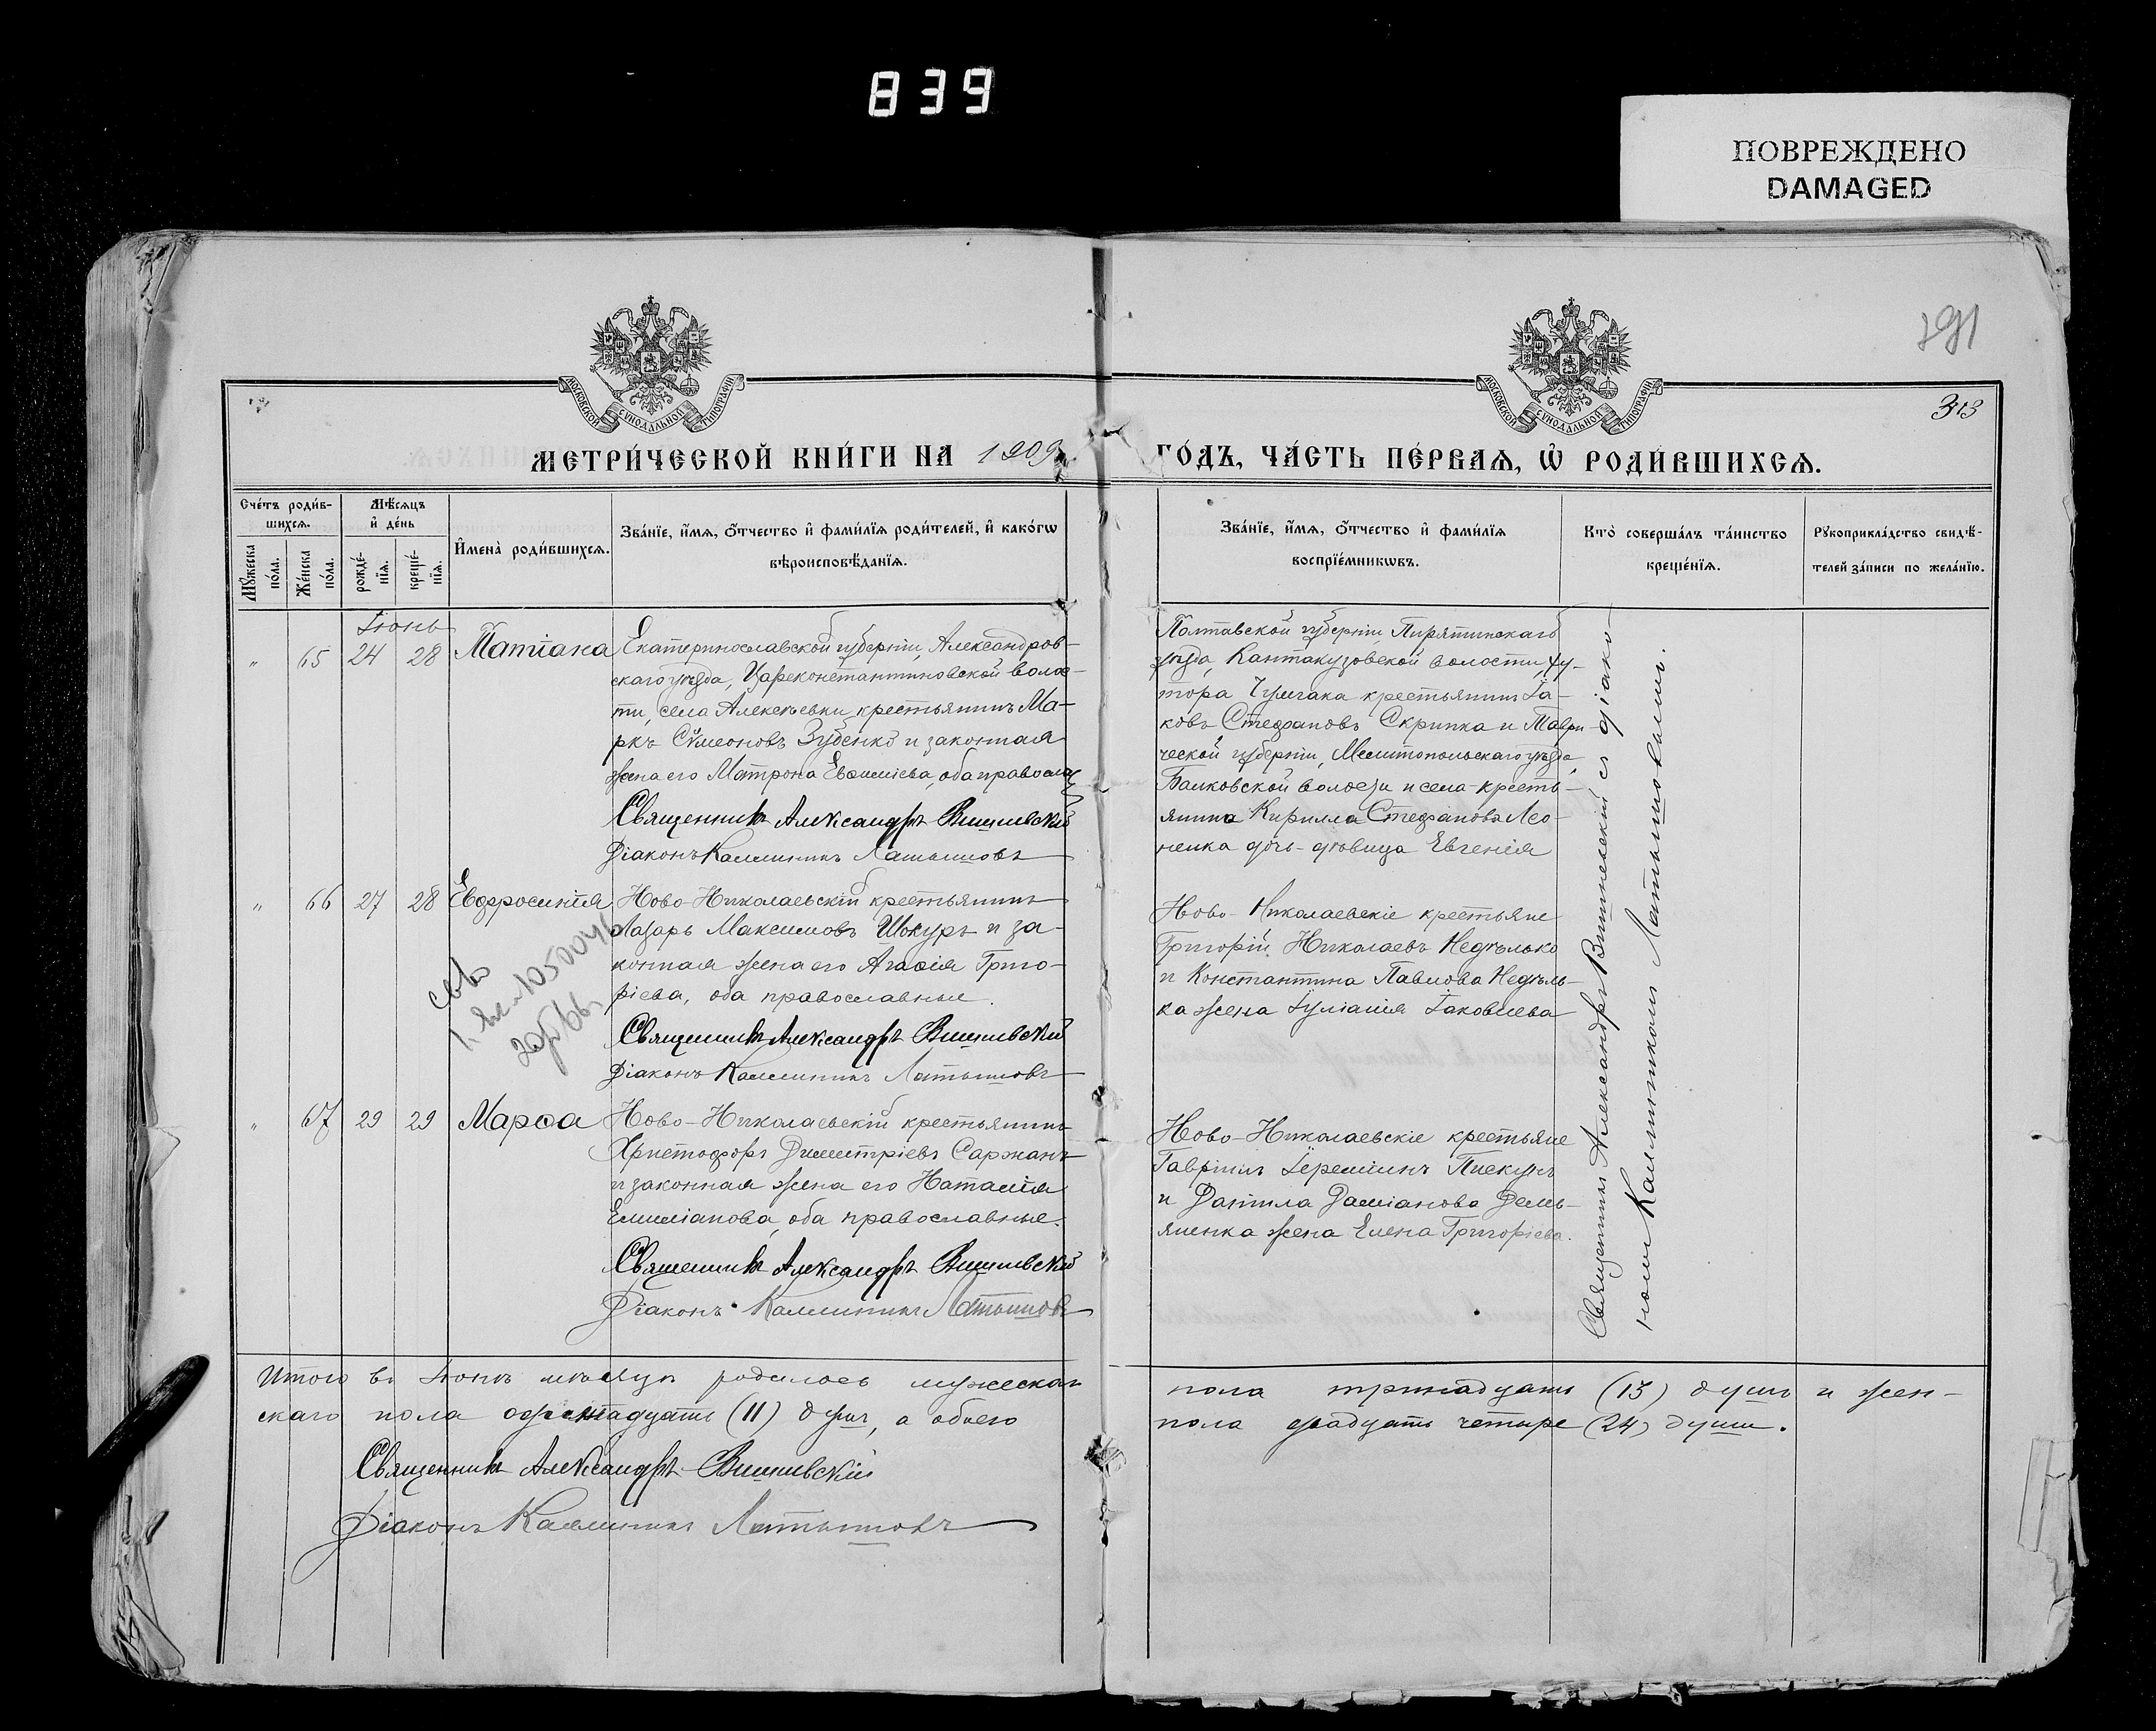 839
ПОВРЕЖДЕНО
DAMAGED
313
МОСКОВСКОЙ СѴНОДАЛЬНОЙ ТИПОГРАФІИ
МОСКОВСКОЙ СѴНОДАЛЬНОЙ ТИПОГРАФІИ
МЕТРИ́ЧЕСКОЙ КНИ́ГИ НА 1909
ГО́ДЪ, ЧА́СТЬ ПЕ́РВАѦ, Ѽ РОДИ́ВШИХСѦ.
Сче́тъ роди́в-
шихсѧ.
Мꙋжеска по́ла.
Же́нска по́ла.
Мѣ́сѧцъ
и҆ де́нь
рожде́-
нїѧ.
креще́-
нїѧ.
И҆мена̀ роди́вшихсѧ.
Зва́нїе, и҆́мѧ, ѻ҆́тчество и҆ фами́лїѧ роди́телей, и҆ како́гѡ
вѣроисповѣ́данїѧ.
Зва́нїе, и҆́мѧ, ѻ҆́тчество и҆ фами́лїѧ
воспрїе́мникѡвъ.
Кто̀ соверша́лъ та́инство
креще́нїѧ.
Рꙋкоприкла́дство свидѣ́-
телей за́писи по жела́нїю.
Іюнь
" 65 24 28 Татіана
Екатеринославской губерніи, Александров-
скаго уѣзда, Цареконстантиновской волос-
ти, села Алексѣевки крестьянинъ Ма-
ркъ Сѵмеоновъ Зубенко и законная
жена его Матрона Евѳиміева, оба православ
Священникъ Александръ Вишневскій
Діаконъ Каллиникъ Латышовъ
Полтавской губерніи, Пирятинскаго
уѣзда, Кантакузовской волости, ху-
тора Чумгака крестьянинъ Іа-
ковъ Стефановъ Скрипка и Таври
ческой губерніи, Мелитопольскаго уѣзда,
Балковской волости и села крестъ-
янина Кирилла Стефанова Лео-
ненка дочь-дѣвица Евгенія
" 66 27 28 Евфросинія
Ново-Николаевскій крестьянинъ
Лазарь Максимовъ Шокуръ и за-
конная жена его Агаѳія Григо-
ріева, оба православные.
Священникъ Александръ Вишневскій
Діаконъ Каллиникъ Латышовъ
Ново-Николаевскіе крестьяне
Григорій Николаевъ Недѣлько
и Константина Павлова Недѣль-
ка жена Іуліанія Іаковлева
" 67 29 29 Марѳа
Ново-Николаевскій крестьянинъ
Христофоръ Димитріевъ Саржанъ
и законная жена его Наталія
Емиліанова, оба православные.
Священникъ Александръ Вишневскій
Діаконъ Каллиникъ Латышовъ
Ново-Николаевскіе крестьяне
Гавріилъ Іереміинъ Пискунъ
и Даніила Даміанова Демь-
яненка жена Елена Григоріева.
Священникъ Александръ Вишневскій съ діако-
номъ Каллиникомъ Латышовымъ.
Итого въ Іюнѣ мѣсяцѣ родилось мужескаго
пола тринадцать (13) душъ и жен-
скаго пола одиннадцать (11) душъ, а обоего
пола двадцать четыре (24) души.
Священникъ Александръ Вишневскій
Діаконъ Каллиникъ Латышовъ